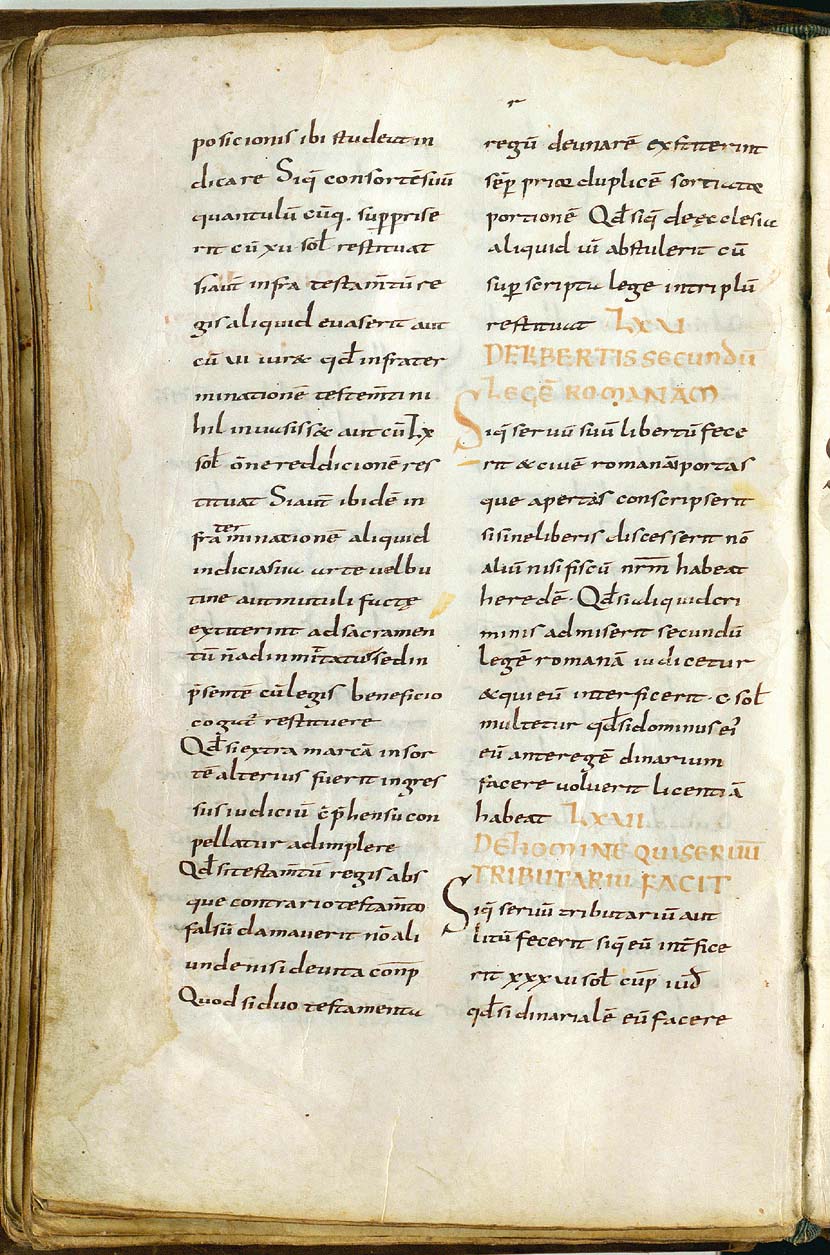 posicionis ibi studeat in
dicare Siq̄ consortē suū
quantulū cūq. sup̄prise
rit cū xv sol̄ restituat
siaut̄ infra testam̄tū re
gis aliquid evaserit aut
cū vi iur& qd̄ infrater
minationē testem̄ti ni
hil invasiss& aut cū Lx
sol̄ ōne reddicionē res
tituat Siaut̄ ibidē in
fraterminationē aliquid
indicia siva arte vel bu
tine aut mutuli factę
extiterint ad sacramen
tū n̄ admittatur sed in
p̄sentē cū legis beneficio
cogat̄ restituere
Qd̄ si extra marcā in sor
tē alterius fuerit ingres
sus iudiciū c̄p̄hensu con
pellatur adimplere
Qd̄ si testam̄tū regis abs
que contrario testam̄to
falsū clamaverit nō ali
unde nisi de vita conp̄
Quod si duo testamenta
regū de una rē exstiterint
sēp̄ priore duplicē sortiatur
portionē Qd̄ siq̄ de ęcclesia
aliquid vī abstulerit cū
sup̄scripta lege in triplū
restituat LXI
DE LIBERTIS SECUNDŪ
LEGĒ ROMANAM
Siq̄ servū suū libertū fece
rit & civē romanā portas
que apertas conscripserit
si sine liberis discesserit nō
aliū nisi fiscū nr̄m habeat
heredē. Qd̄ si aliquid cri
minis admiserit secundū
legē romanā iudicetur
& qui eū interficerit. c sol̄
multetur qd̄ si dominus ei'
eū ante regē dinarium
facere voluerit licentiā
habeat LXII
DE HOMINE QUI SERVŪ
TRIBUTARIU FACIT
Siq̄ servū tributariū aut
litū fecerit siq̄ eū int̄fice
rit xxxvi sol̄ cūp iud̄
qd̄ si dinarialē eū facere